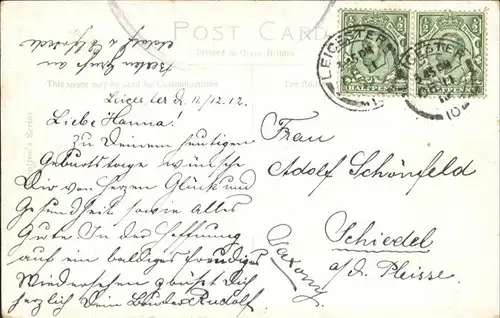 POST CARD
Printed in Great Britain
This space may be used for Communication
The Address
LEICESTER
3.45 PM
HALFPENNY
LEICESTER
3.45 PM
HALFPENNY
Besten Gruß an
Adolf &
Leicester d. 11/12.12.
Liebe Hanna!
Zu Deinem heutigen
Geburtstage wünsche
Dir von Herzen Glück und
Gesundheit sowie Alles
Gute. In der Hoffnung
auf ein baldiges freudiges
Wiedersehen grüßt Dich
herzlich Dein Bruder Rudolf
Frau
Adolf Schönfeld
Schiedel
a/d. Pleisse.
Saxony
Series